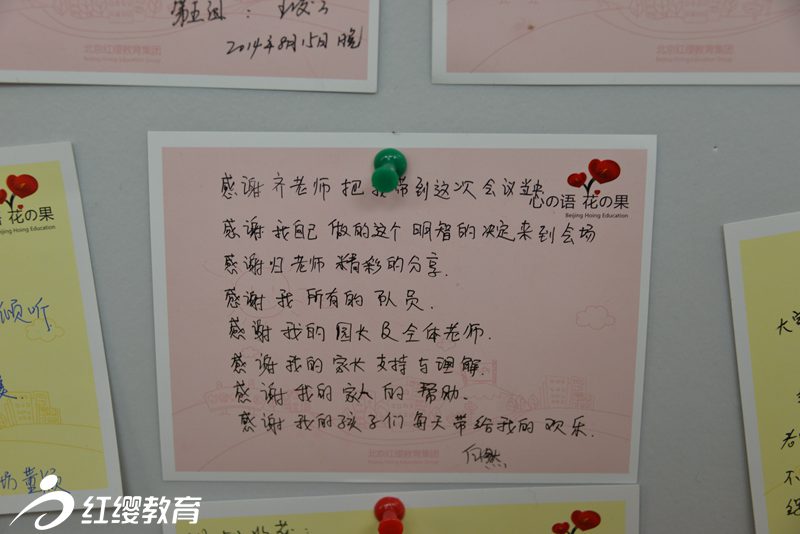 第五组：
2014年8月15日晚
北京红缨教育集团
Beijing Hoing Education Group
北京红缨教育集团
Beijing Hoing Education Group
心の语 花の果
Beijing Hoing Education
感谢齐老师把我带到这次会议当中
感谢我自己做的这个明智的决定来到会场
感谢归老师精彩的分享.
感谢我所有的队员.
感谢我的园长及全体老师.
感谢我的家长支持与理解.
感谢我的家人的帮助.
感谢我的孩子们每天带给我的欢乐.
北京红缨教育集团
语 花の果
Beijing Hoing Education
倾听
红缨教育